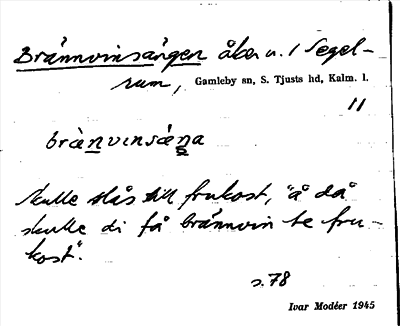 Brännvinsängen åker u. 1 Segel-
rum, Gamleby sn, S. Tjusts hd, Kalm. l.
11
brànvinsäna
Skulle slås till frukost, "å då
skulle di få brännvin te fru-
kost".
s. 78
Ivar Modéer 1945